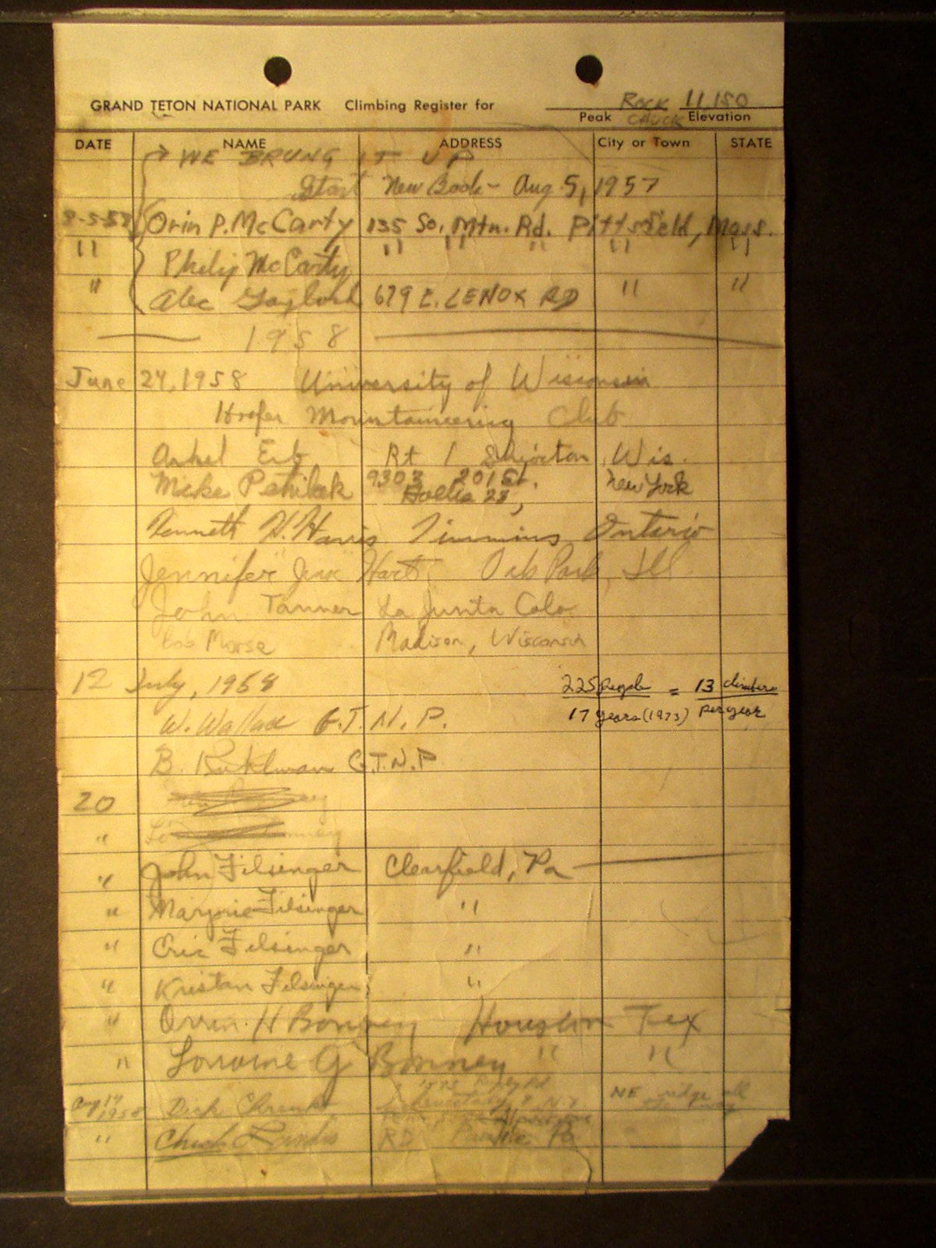 GRAND TETON NATIONAL PARK Climbing Register for ROCK CHUCK Peak 11,150 Elevation
DATE NAME ADDRESS City or Town STATE
WE BRUNG IT UP
Start New Book - Aug 5, 1957
8-5-57 Orin P. McCarty 135 So. Mtn. Rd. Pittsfield, Mass.
" Philip McCarty " " " " "
" Alec Gaylord 679 E. LENOX RD " "
1958
June 24, 1958 University of Wisconsin
Hoofer Mountaineering Club
Erb Rt 1 Wis.
Mike 9303 201 St. New York
Hollis 23,
Kenneth H. Harris Timmins, Ontario
Jennifer Hart Oak Park, Ill
John Tanner La Junta Colo
Bob Morse Madison, Wisconsin
12 July, 1958 225 people = 13 climbers
W. Wallace G.T.N.P. 17 years (1973) per year
B. G.T.N.P
20
"
" John Filsinger Clearfield, Pa
" Marjorie Filsinger "
" Eric Filsinger "
" Kristan Filsinger "
" Orrin H Bonney Houston Tex
" Lorraine G Bonney " "
Aug 17 1958 Dick N.Y. NE ridge all the way
" Chuck RD Pa